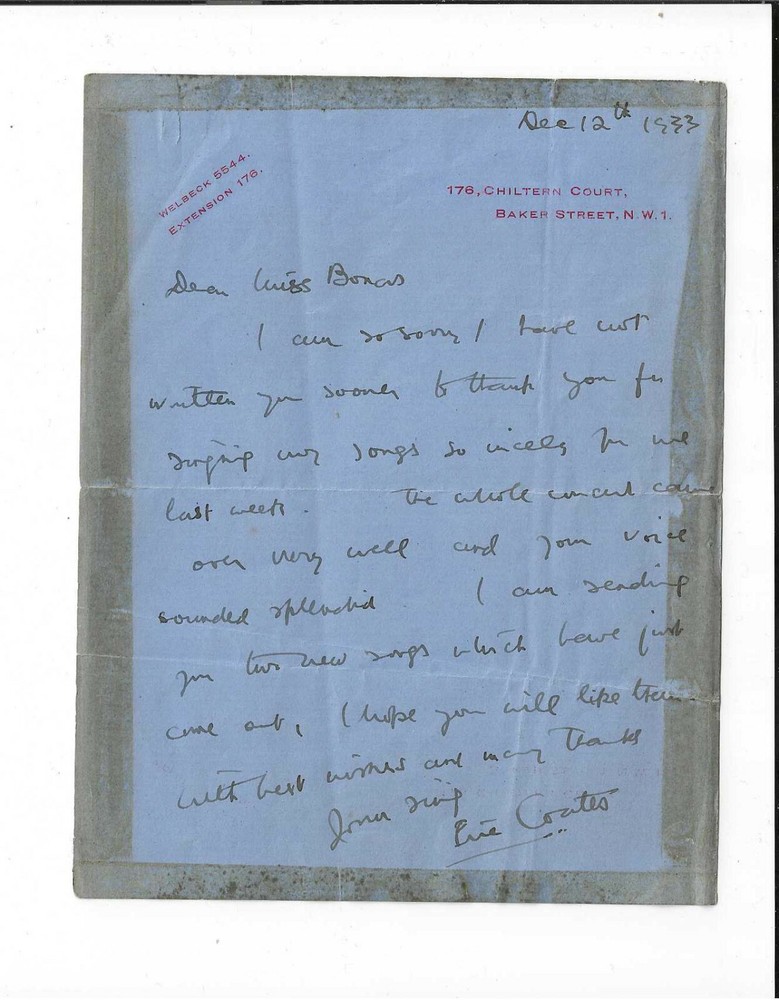 Dec 12th 1933
WELBECK 5544.
EXTENSION 176.
176, CHILTERN COURT,
BAKER STREET, N.W.1.
Dear Miss Bonas
I am so sorry I have not
written you sooner to thank you for
singing my songs so nicely for me
last week. The whole concert came
over very well and your voice
sounded splendid I am sending
you two new songs which have just
come out, I hope you will like them
with best wishes and many thanks
Eric Coates